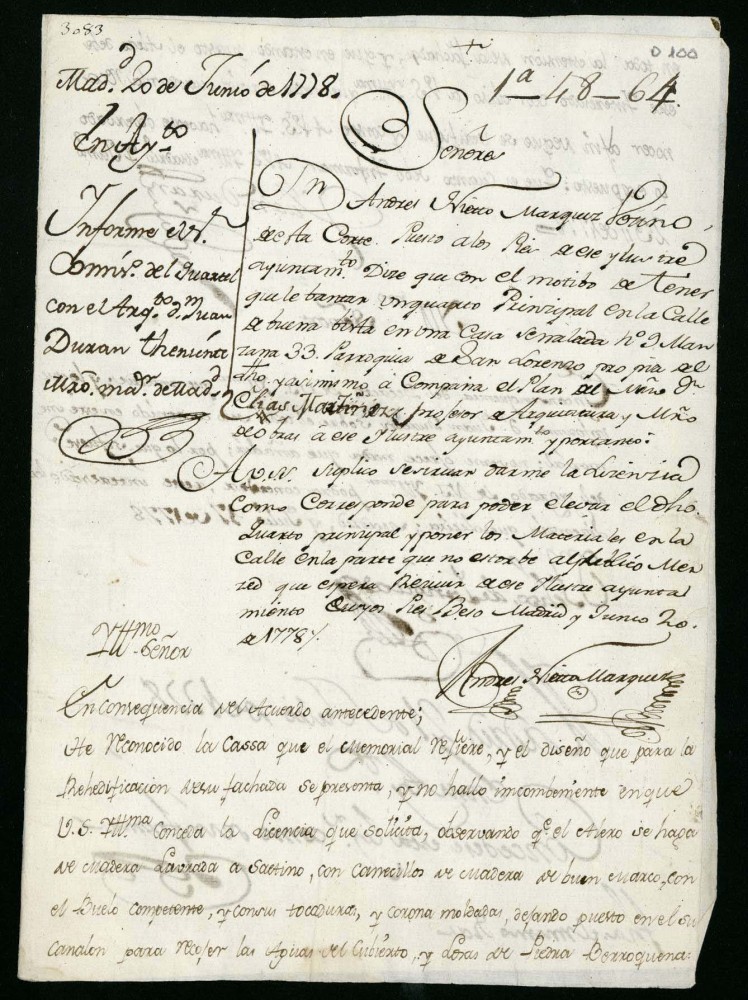 3083
D 100
+
1ª-48-64.
Mad.ᵈ 20 de Junio de 1778.
En Ay.ᵗᵒ
Informe el S.ʳ
Comis.º del Quartel
con el Arq.ᵗᵒ d.ⁿ Juan
Duran theniente
Mrõ. m.ʳ de Mad.ᵈ
Señor
Dn Andres Nieto Marquez Vecino
de esta Corte. Puesto a los Pies de ese ylustre
ayuntam.ᵗᵒ Dize que con el motibo de tener
que lebantar un quarto Principal en la Calle
de buena bista en una Casa señalada nº 9 Man
zana 33. Parroquia de San Lorenzo propia del
dho. y asimismo a Compaña el Plan del Mrõ Dn
Elias Martinez, profesor de Arquitatura y Mrõ
de Obras a ese Ilustre ayuntam.ᵗᵒ y portanto:
A V. S. Suplico se sirvan darme la Lizenzia
como Corresponde para poder elevar el dho.
Quarto principal y poner los Materiales en la
Calle en la parte que no estorbe al publico Mer
zed que espera Rezivir de ese Ilustre ayunta
miento Cuyos Pies Beso Madrid y Junio 20.
de 1778/.
Andres Nieto Marquez
Yllmo
Señor
En Consequencia del Acuerdo antecedente;
He reconocido la Cassa que el Memorial refiere, y el diseño que para la
Rehedificacion de su fachada se presenta, y no hallo imcombeniente en que
V. S. Yllma Conceda la Licencia que solicita, observando q.ᵉ el Alero se haga
de Madera Labrada a Saetino, con Canecillos de Madera de buen Marco, con
el Buelo competente, y con sus tocaduras, y corona moldadas, dejando puesto en el su
Canalon para recojer las Aguas del Cubierto, y Losas de Piedra Berroqueña: